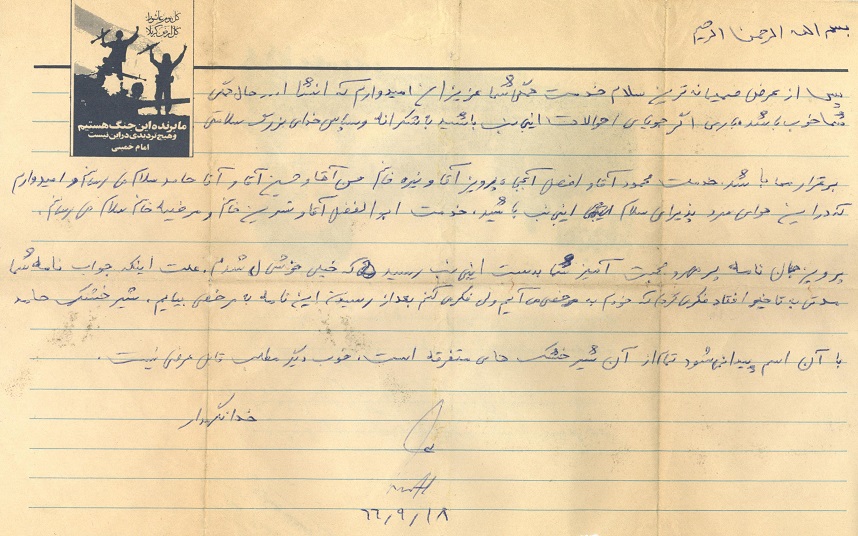 بسم الله الرحمن الرحیم
کل یوم عاشورا
کل ارض کربلا
ما برنده این جنگ هستیم
و هیچ تردیدی در این نیست
امام خمینی
پس از عرض صمیمانه ترین سلام خدمت همگی شما عزیزان امیدوارم که انشاا... حال همگی
شما خوب باشد و باری اگر جویای احوالات اینجانب باشید با شکرانه و سپاس خدای بزرگ سلامتی
برقرار میباشد. خدمت محمود آقا و افضل آبجی و پرویز آقا و منیره خانم حسن آقا و حسین آقا و آقا حامد سلام می رسانم و امیدوارم
که در این هوای سرد پذیرای سلام اینجانب باشید، خدمت ابوالفضل آقا و شیرین خانم و مرضیه خانم سلام می رسانم.
پرویز جان نامه پر مهر و محبت آمیز شما بدست اینجانب رسید که خیلی خوشحال شدم، علت اینکه جواب نامه شما
مدتی به تاخیر افتاد فکر می کردم که خودم به مرخصی می آیم ولی فکر می کنم بعد از رسیدن این نامه به مرخصی بیایم، شیر خشک حامد
با آن اسم پیدا نمی شود تمام از آن شیر خشک های متفرقه است، خوب دیگر مطلب قابل عرضی نیست.
خدانگهدار
۶۶/۹/۱۸